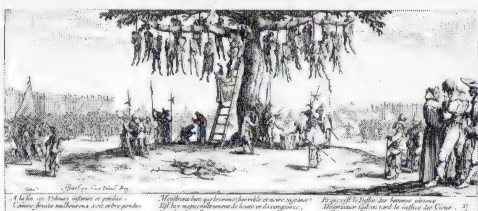 Israel ex. Cum Privil. Reg.
A la fin ces Voleurs infames et perdus,
Comme fruits malheureux a cet arbre pendus
Monstrent bien que le crime horrible et noire engeance
Est luy mesme instrument de honte et de vengeance,
Et que c'est le Destin des hommes vicieux
D'esprouver tost ou tard la iustice des Cieux. 11